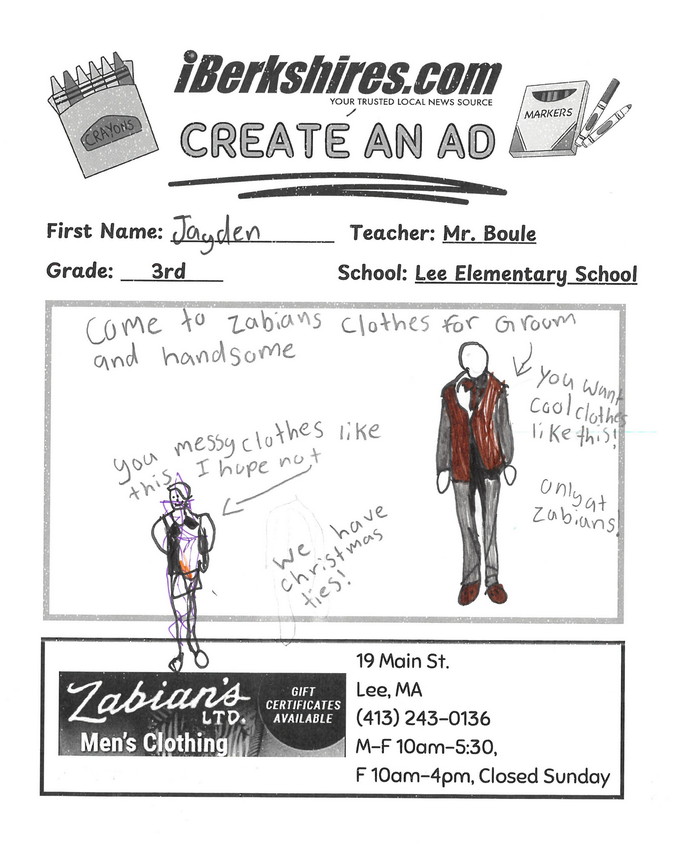 CRAYONS
iBerkshires.com
YOUR TRUSTED LOCAL NEWS SOURCE
CREATE AN AD
MARKERS
First Name: Jayden Teacher: Mr. Boule
Grade: 3rd School: Lee Elementary School
Come to Zabians Clothes for Groom
and handsome
you want
cool clothes
like this!
only at
Zabians!
you messy clothes like
this, I hope not
we have
christmas
ties!
Zabian's
LTD.
Men's Clothing
GIFT
CERTIFICATES
AVAILABLE
19 Main St.
Lee, MA
(413) 243-0136
M-F 10am-5:30,
F 10am-4pm, Closed Sunday